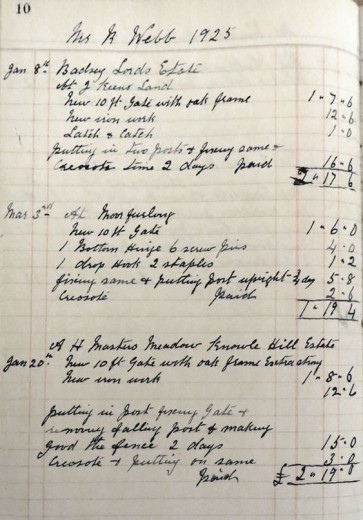 10
Mr W Webb 1925
Jan 8th Badsey Lords Estate
At J Keens Land
New 10 ft Gate with oak frame 1-7-6
New iron work 12-6
Latch & Catch 1-0
putting in two posts & fixing same &
Creosote time 2 days paid 16-6
2-17 6
Mar 3rd At
New 10 ft Gate 1-6-0
1 Bottom Hinge 6 screw pins 4-0
1 drop Hook 2 staples 1-2
fixing same & putting post upright ¾ day 5-8
Creosote Paid 2-6
1-19 4
Jan 20th A H Masters Meadow Knowle Hill Estate
New 10 ft Gate with oak frame Extra strong 1-8-6
New iron work 12-6
putting in post fixing Gate &
removing falling post & making
good the fence 2 days 15-0
Creosote & putting on same 3-0
Paid £2-19-0